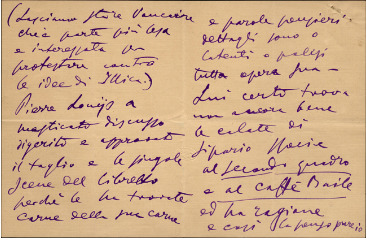 (Lasciamo stare Vaucaire
che è parte più lesa
e interessata per
protestare contro
le idee di Illica.)
Pierre Louÿs a
masticato discusso
digerito e approvato
il taglio e le singole
scene del libretto
perchè le ha trovate
carne della sua carne
e parole pensieri
dettagli sono o
latenti o palesi
tutta opera sua
Lui certo trova
non ancora bene
le calate di
sipario
al secondo quadro
e al caffè Baile
ed ha ragione
e così la penso pure io